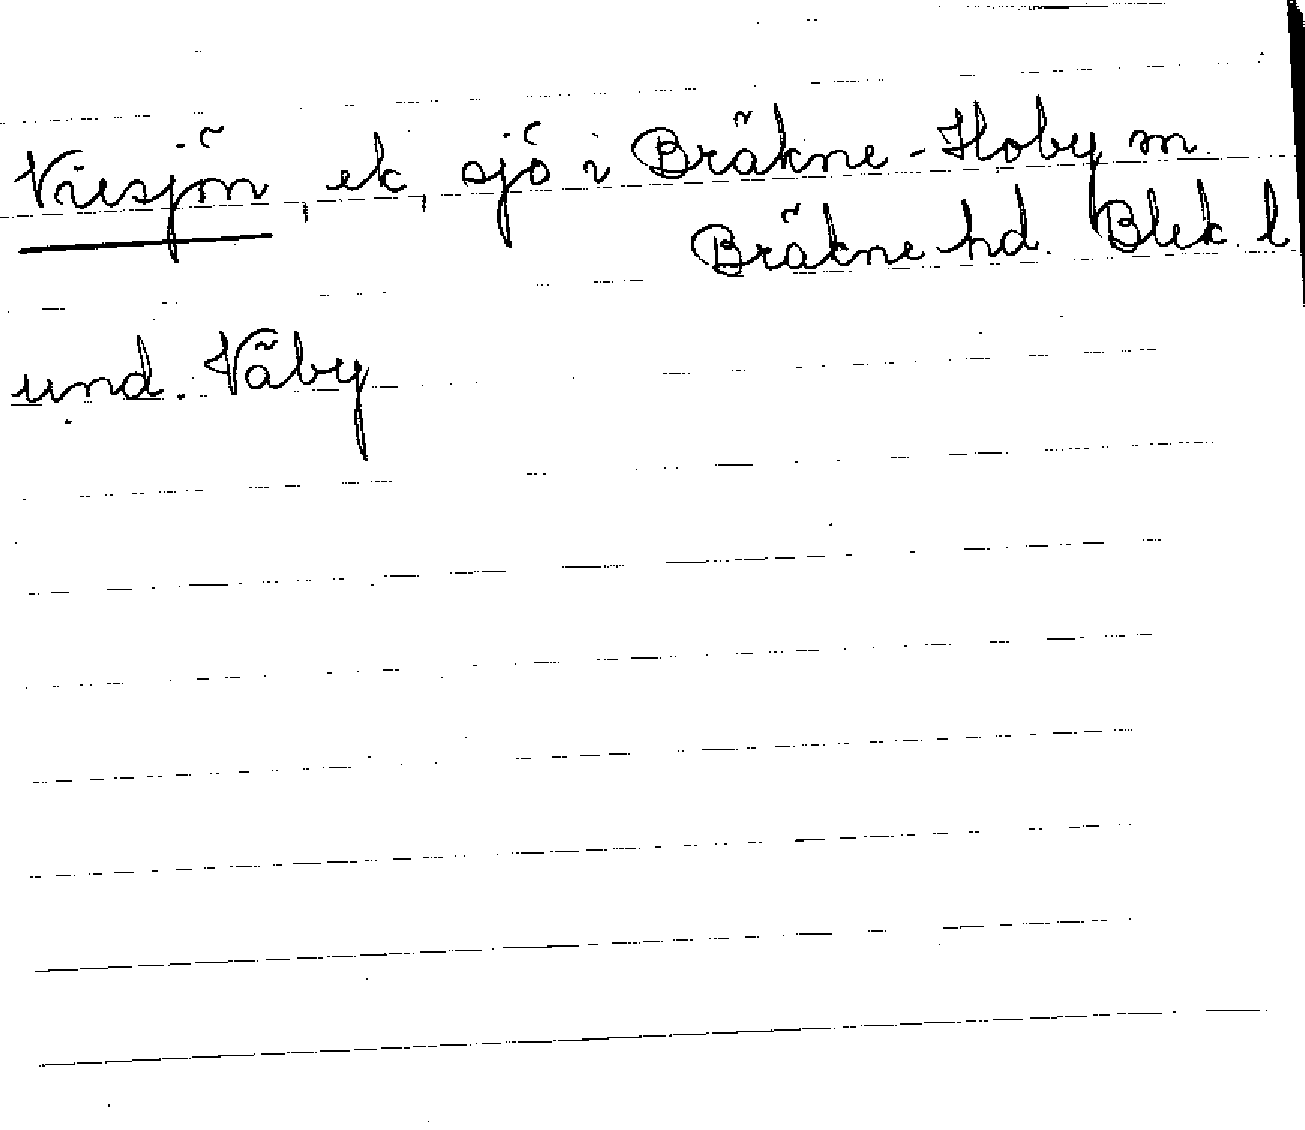 Viesjön, ek, sjö i Bräkne-Hoby sn.
Bräkne hd. Blek. l
und. Väby